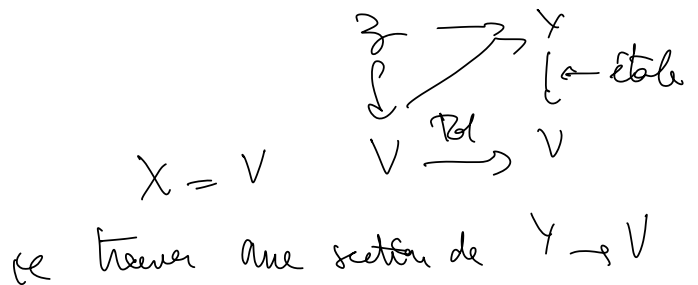 Z → Y
↓ ← étale
V → V
X = V
trouver une section de Y → V